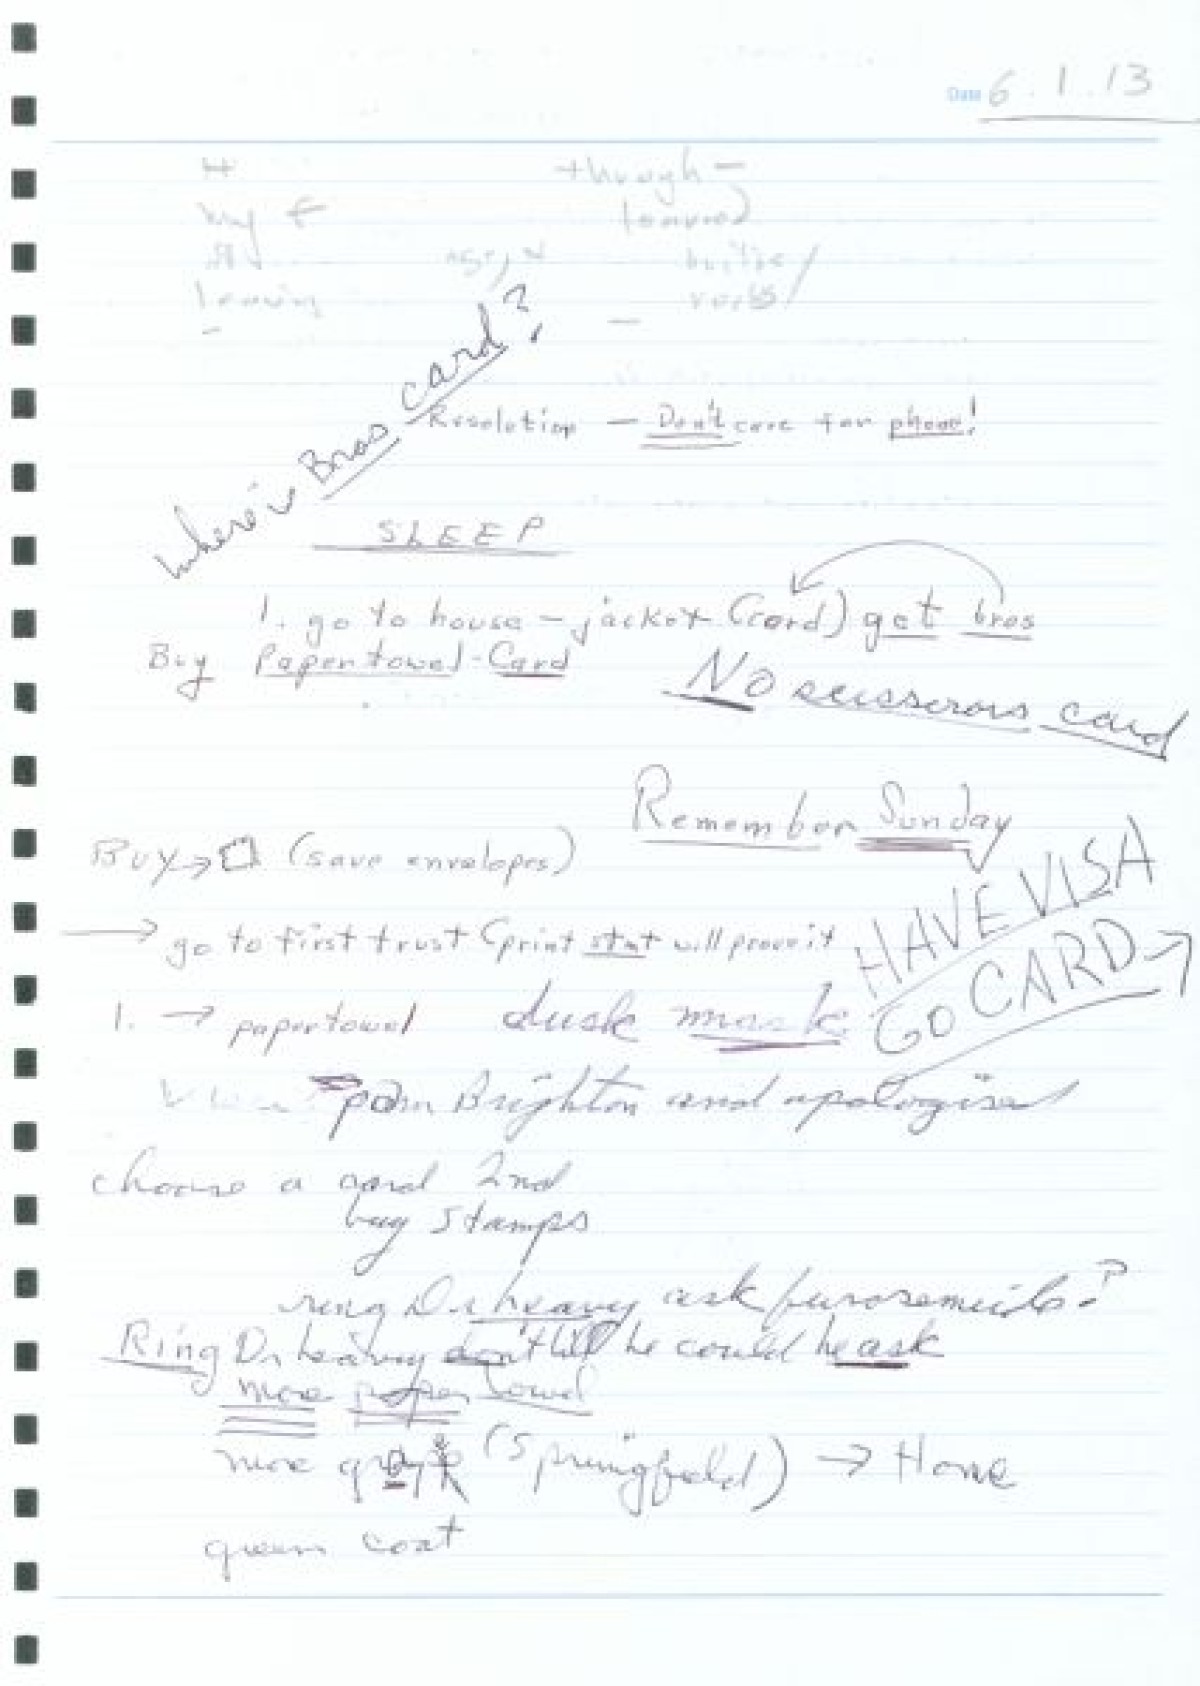 Date 6.1.13
through -
my
leaving
Where's Bros card?
Resolution - Don't care for phone!
SLEEP
1. go to house - jacket (card) get bros
Buy Papertowel-Card
No scisserous card
Remember Sunday
Buy → (save envelopes)
HAVE VISA
→ go to first trust (print stmt will prove it
GO CARD →
1. → papertowel dusk mask
pam Brighton and apologised
choose a card 2nd
buy stamps
ring Dr heavy ask furosemide?
Ring Dr heavy don't till he could he ask
more paper towel
more (Springfield) → Home
green coat